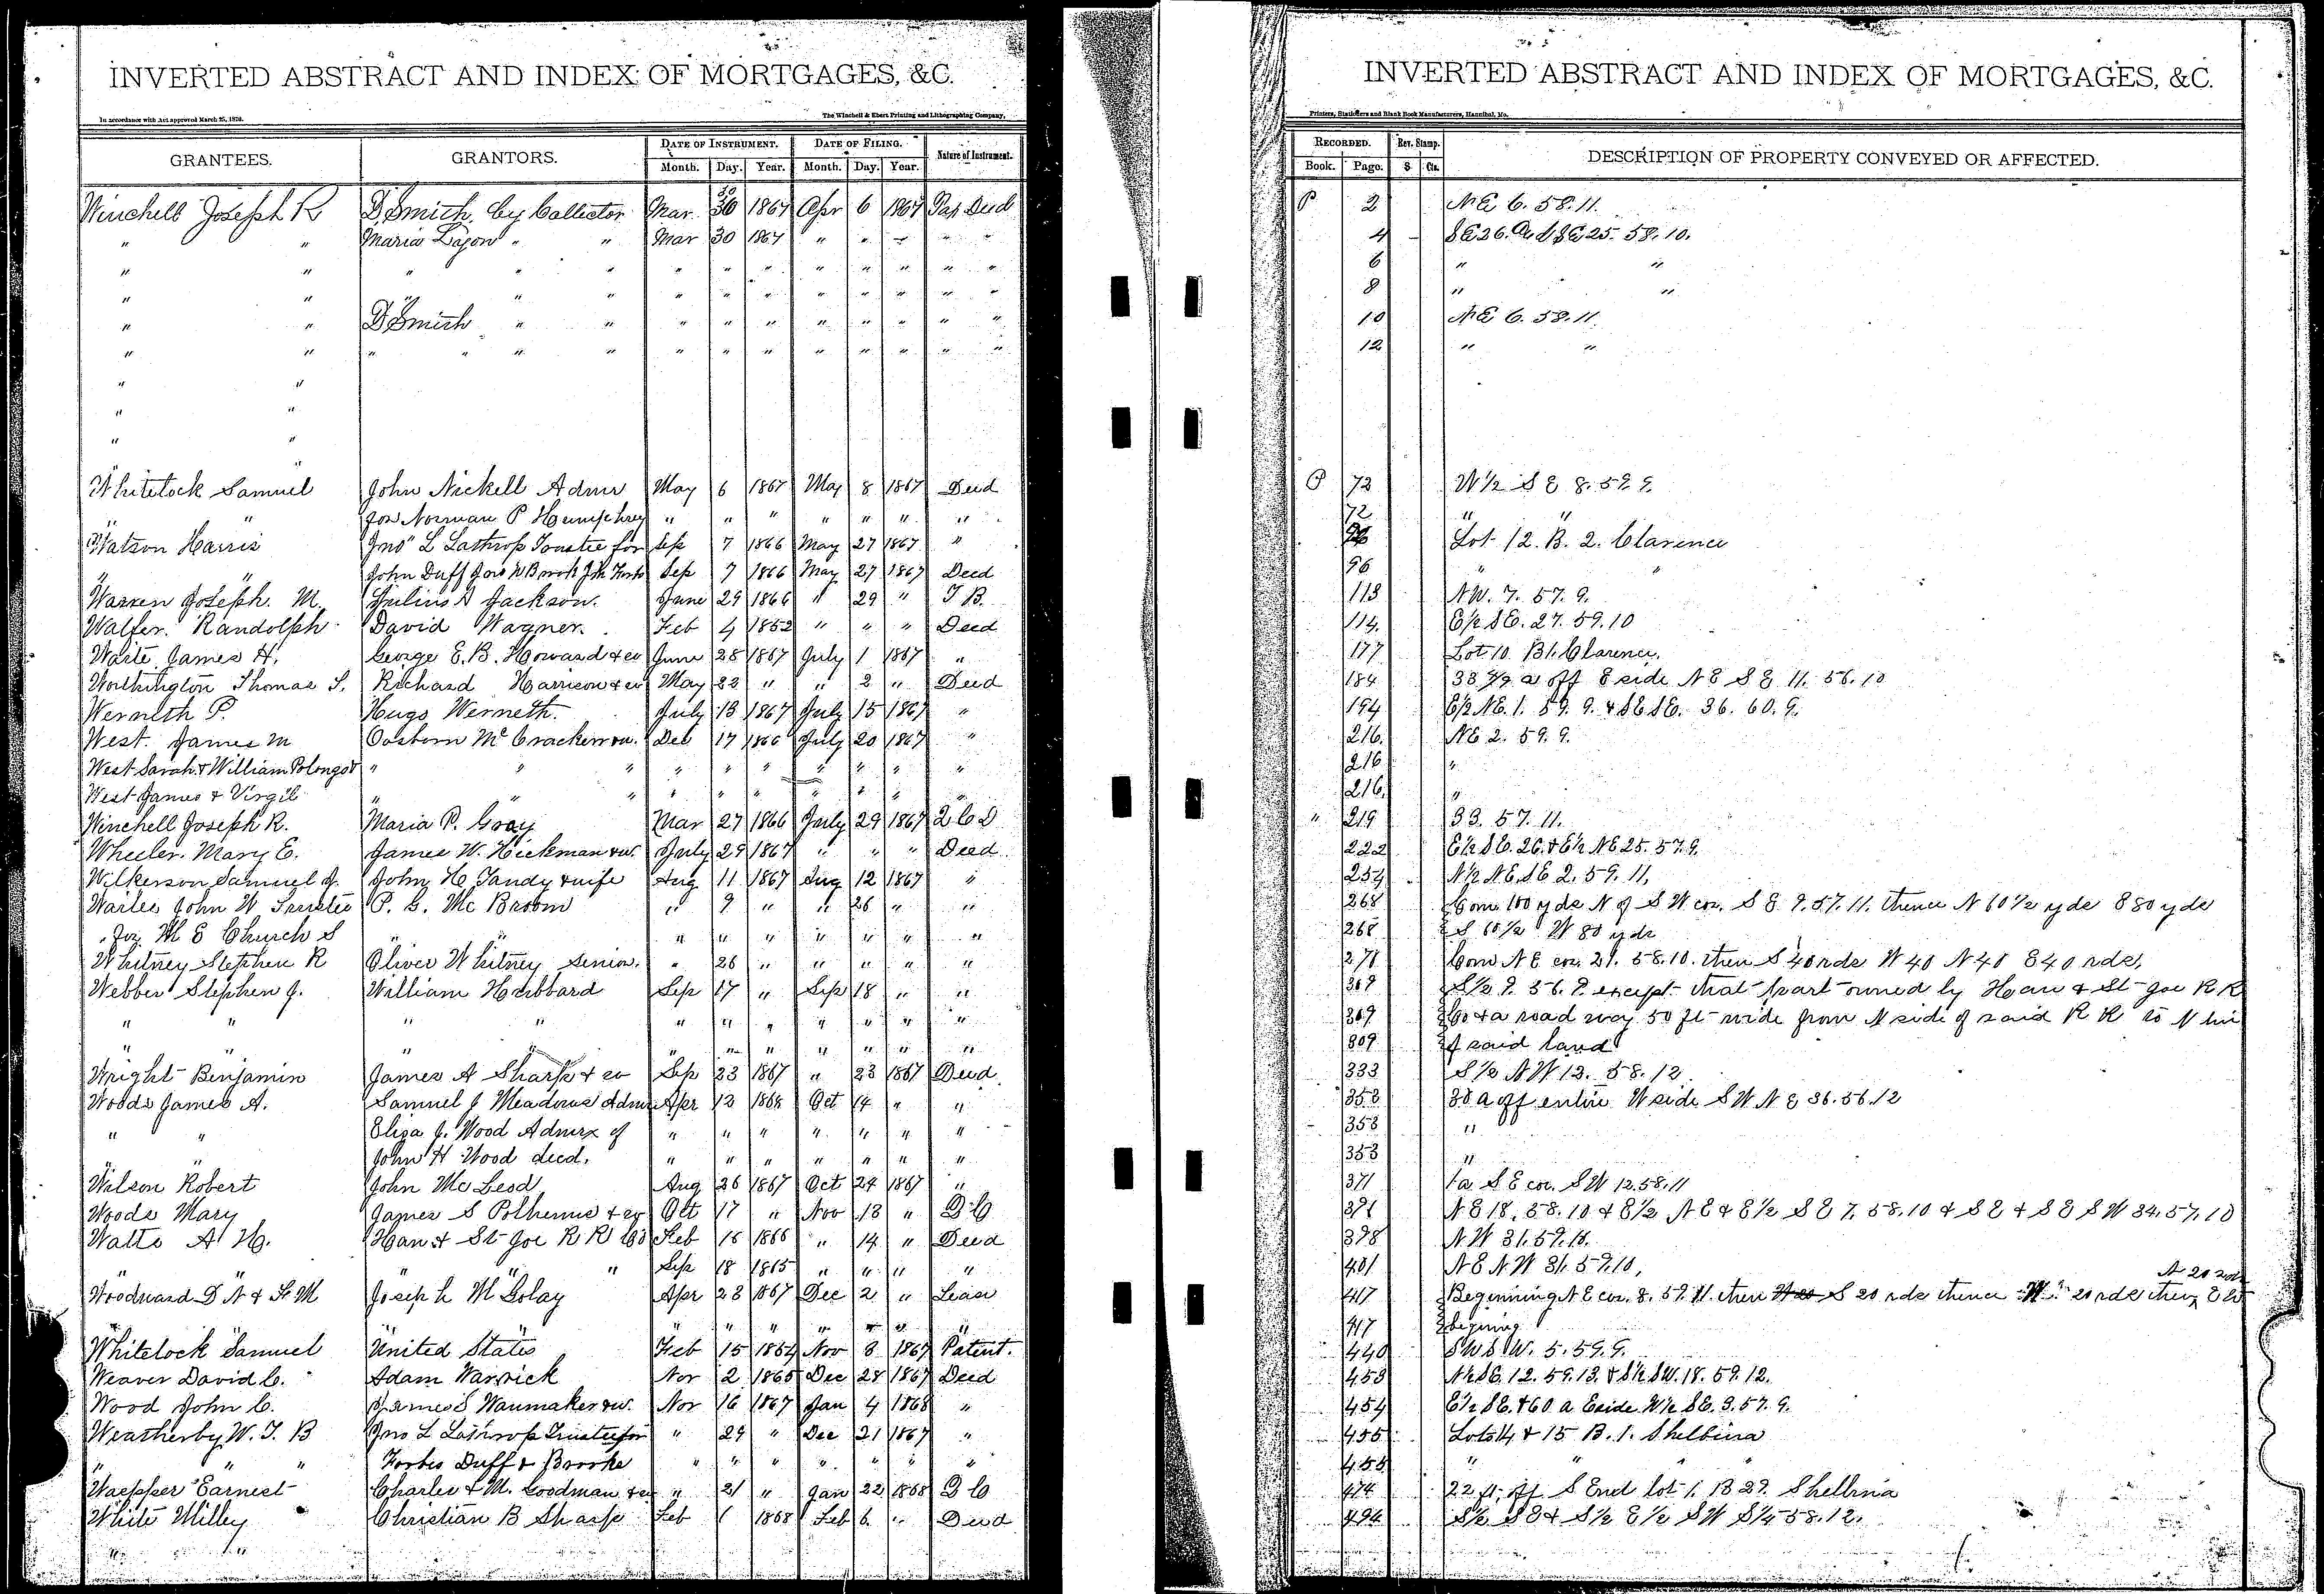 INVERTED ABSTRACT AND INDEX OF MORTGAGES, &C.
In accordance with Act approved March 25, 1870.
The Winchell & Ebert Printing and Lithographing Company,
GRANTEES. GRANTORS. DATE OF INSTRUMENT. DATE OF FILING. Nature of Instrument.
Month. Day. Year. Month. Day. Year.
Winchell Joseph R D Smith by Collector Mar 30 1867 Apr 6 1867 Deed
" " Maria " " Mar 30 1867 " " " " "
" " " " " " " " " " " " "
" " " " " " " " " " " " "
" " D Smith " " " " " " " " " "
" " " " " " " " " " " " " "
" "
" "
" "
"
Whitelock Samuel John Nickell Admr May 6 1867 May 8 1867 Deed
" for Norman P Humphrey " " " " " " "
Watson Harris Jno L Lathrop Trustee for Sep 7 1866 May 27 1867 "
" " John Duff Sep 7 1866 May 27 1867 Deed
Warren Joseph. M. Jackson. June 29 1866 " 29 "
Walfer. Randolph David Wagner. Feb 4 1852 " " " Deed
Waite James H. George E. B. Howard & co June 28 1867 July 1 1867 "
Worthington Thomas S. Richard Harrison & w May 22 " " 2 " Deed
Werneth P. Hugo Werneth. July 13 1867 July 15 1867 "
West. James M Osborn McCracken Dec 17 1866 July 20 1867 "
West Sarah & William " " " " " " " " " "
West James & Virgil " " " " " " " " " "
Winchell Joseph R. Maria P. Gray Mar 27 1866 July 29 1867 Q C D
Wheeler. Mary E. James W. Hickman & w. July 29 1867 " " " Deed.
Wilkerson Samuel J. John H Tandy & wife Aug 11 1867 Aug 12 1867 "
Wailes John W Trustee P. G. McBroom " 9 " " 26 " "
for M E Church S " " " " " " " " "
Whitney Stephen R Oliver Whitney Senior. " 26 " " " " "
Webber Stephen J. William Hubbard Sep 17 " Sep 18 " "
" " " " " " " " " " "
" " " " " " " " " "
Wright Benjamin James A Sharp & co Sep 23 1867 " 23 1867 Deed.
Woods James A. Samuel J Meadows Admr Apr 12 1864 Oct 14 " "
" " Eliza J. Wood Admrx of " " " " " " "
" " John H Wood decd. " " " " " " "
Wilson Robert John McLeod Aug 26 1867 Oct 24 1867 "
Woods Mary James S Polhemus & co Oct 17 " Nov 13 "
Watts A H. Han & St Joe R R Co Feb 16 1866 " 14 " Deed
" " " Sep 18 1865 " " " "
Woodward D N & F M Joseph M Golay Apr 23 1867 Dec 2 " Lease
" " " " " " " " "
Whitelock Samuel United States Feb 15 1854 Nov 8 1867 Patent.
Weaver David C. Adam Warrick Nov 2 1865 Dec 28 1867 Deed
Wood John C. James S Wanmaker & w. Nov 16 1867 Jan 4 1868 "
Weatherby W. T. B Jno L Lathrop Trustee for " 29 " Dec 21 1867 "
" " " Forbes Duff & Brooke " " " " " " "
Waepper Earnest Charles F. M. Goodman " 21 " Jan 22 1868
White Milley Christian B Sharp Feb 1 1868 Feb 6 " Deed
" "
INVERTED ABSTRACT AND INDEX OF MORTGAGES, &C.
Printers, Stationers and Blank Book Manufacturers, Hannibal, Mo.
RECORDED. Rev. Stamp. DESCRIPTION OF PROPERTY CONVEYED OR AFFECTED.
Book. Page. $ Cts.
P 2 NE 6. 58. 11.
4 SE 26. SE 25. 58. 10.
6 " "
8 " "
10 NE 6. 58. 11.
12 " "
P 72 W 1/2 S E 8. 59. 9.
72 " "
96 Lot 12. B. 2. Clarence
96 " "
113 NW. 7. 57. 9.
114. E 1/2 SE. 27. 59. 10
177 Lot 10 B 1. Clarence.
184 a off E side N E S E 11. 56. 10
194 E 1/2 NE. 1. 59. 9. & SE SE. 36. 60. 9.
216. NE 2. 59. 9.
216 "
216. "
" 219 33. 57. 11.
222 E 1/2 SE. 26. & E 1/2 NE 25. 57. 9.
254 N 1/2 N E. S E 2. 59. 11.
268 Com. 100 yds N of S W cor. S E 9. 57. 11. thence N 60 1/2 yds E 80 yds
268 S 60 1/2 W 80 yds
271 Com N E cor. 21. 58. 10. then S 40 rds W 40 N 40 E 40 rds.
309 S 1/2 9. 56. 9. except that part owned by Han & St Joe R R
309 Co & a road way 50 ft wide from N side of said R R to N line
309 of said land
333 S 1/2 N W 13. 58. 12
353 30 a off entire W side S W N E 36. 56. 12
353 "
353 "
371 1 a S E cor. S W 12. 58. 11
N E 18. 58. 10 & E 1/2 N E & E 1/2 S E 7. 58. 10 & S E & S E S W 34. 57. 10
398 N W 31. 59. 10.
401 N E N W 31. 59. 10.
N 20 rods
417 Beginning N E cor. 8. 57. 11. then S 20 rds thence W 20 rds then E to
417 begining
440 S W S W. 5. 59. 9.
453 N 1/2 SE. 12. 59. 13. & S 1/2 SW. 18. 59. 12.
454 E 1/2 SE. & 60 a E side W 1/2 SE. 3. 57. 9.
455 Lots 14 & 15 B. 1. Shelbina
455 " " "
474 22 ft. off S End lot 1. B 27. Shelbina
494 S 1/2 S E & S 1/2 E 1/2 S W 58. 12.